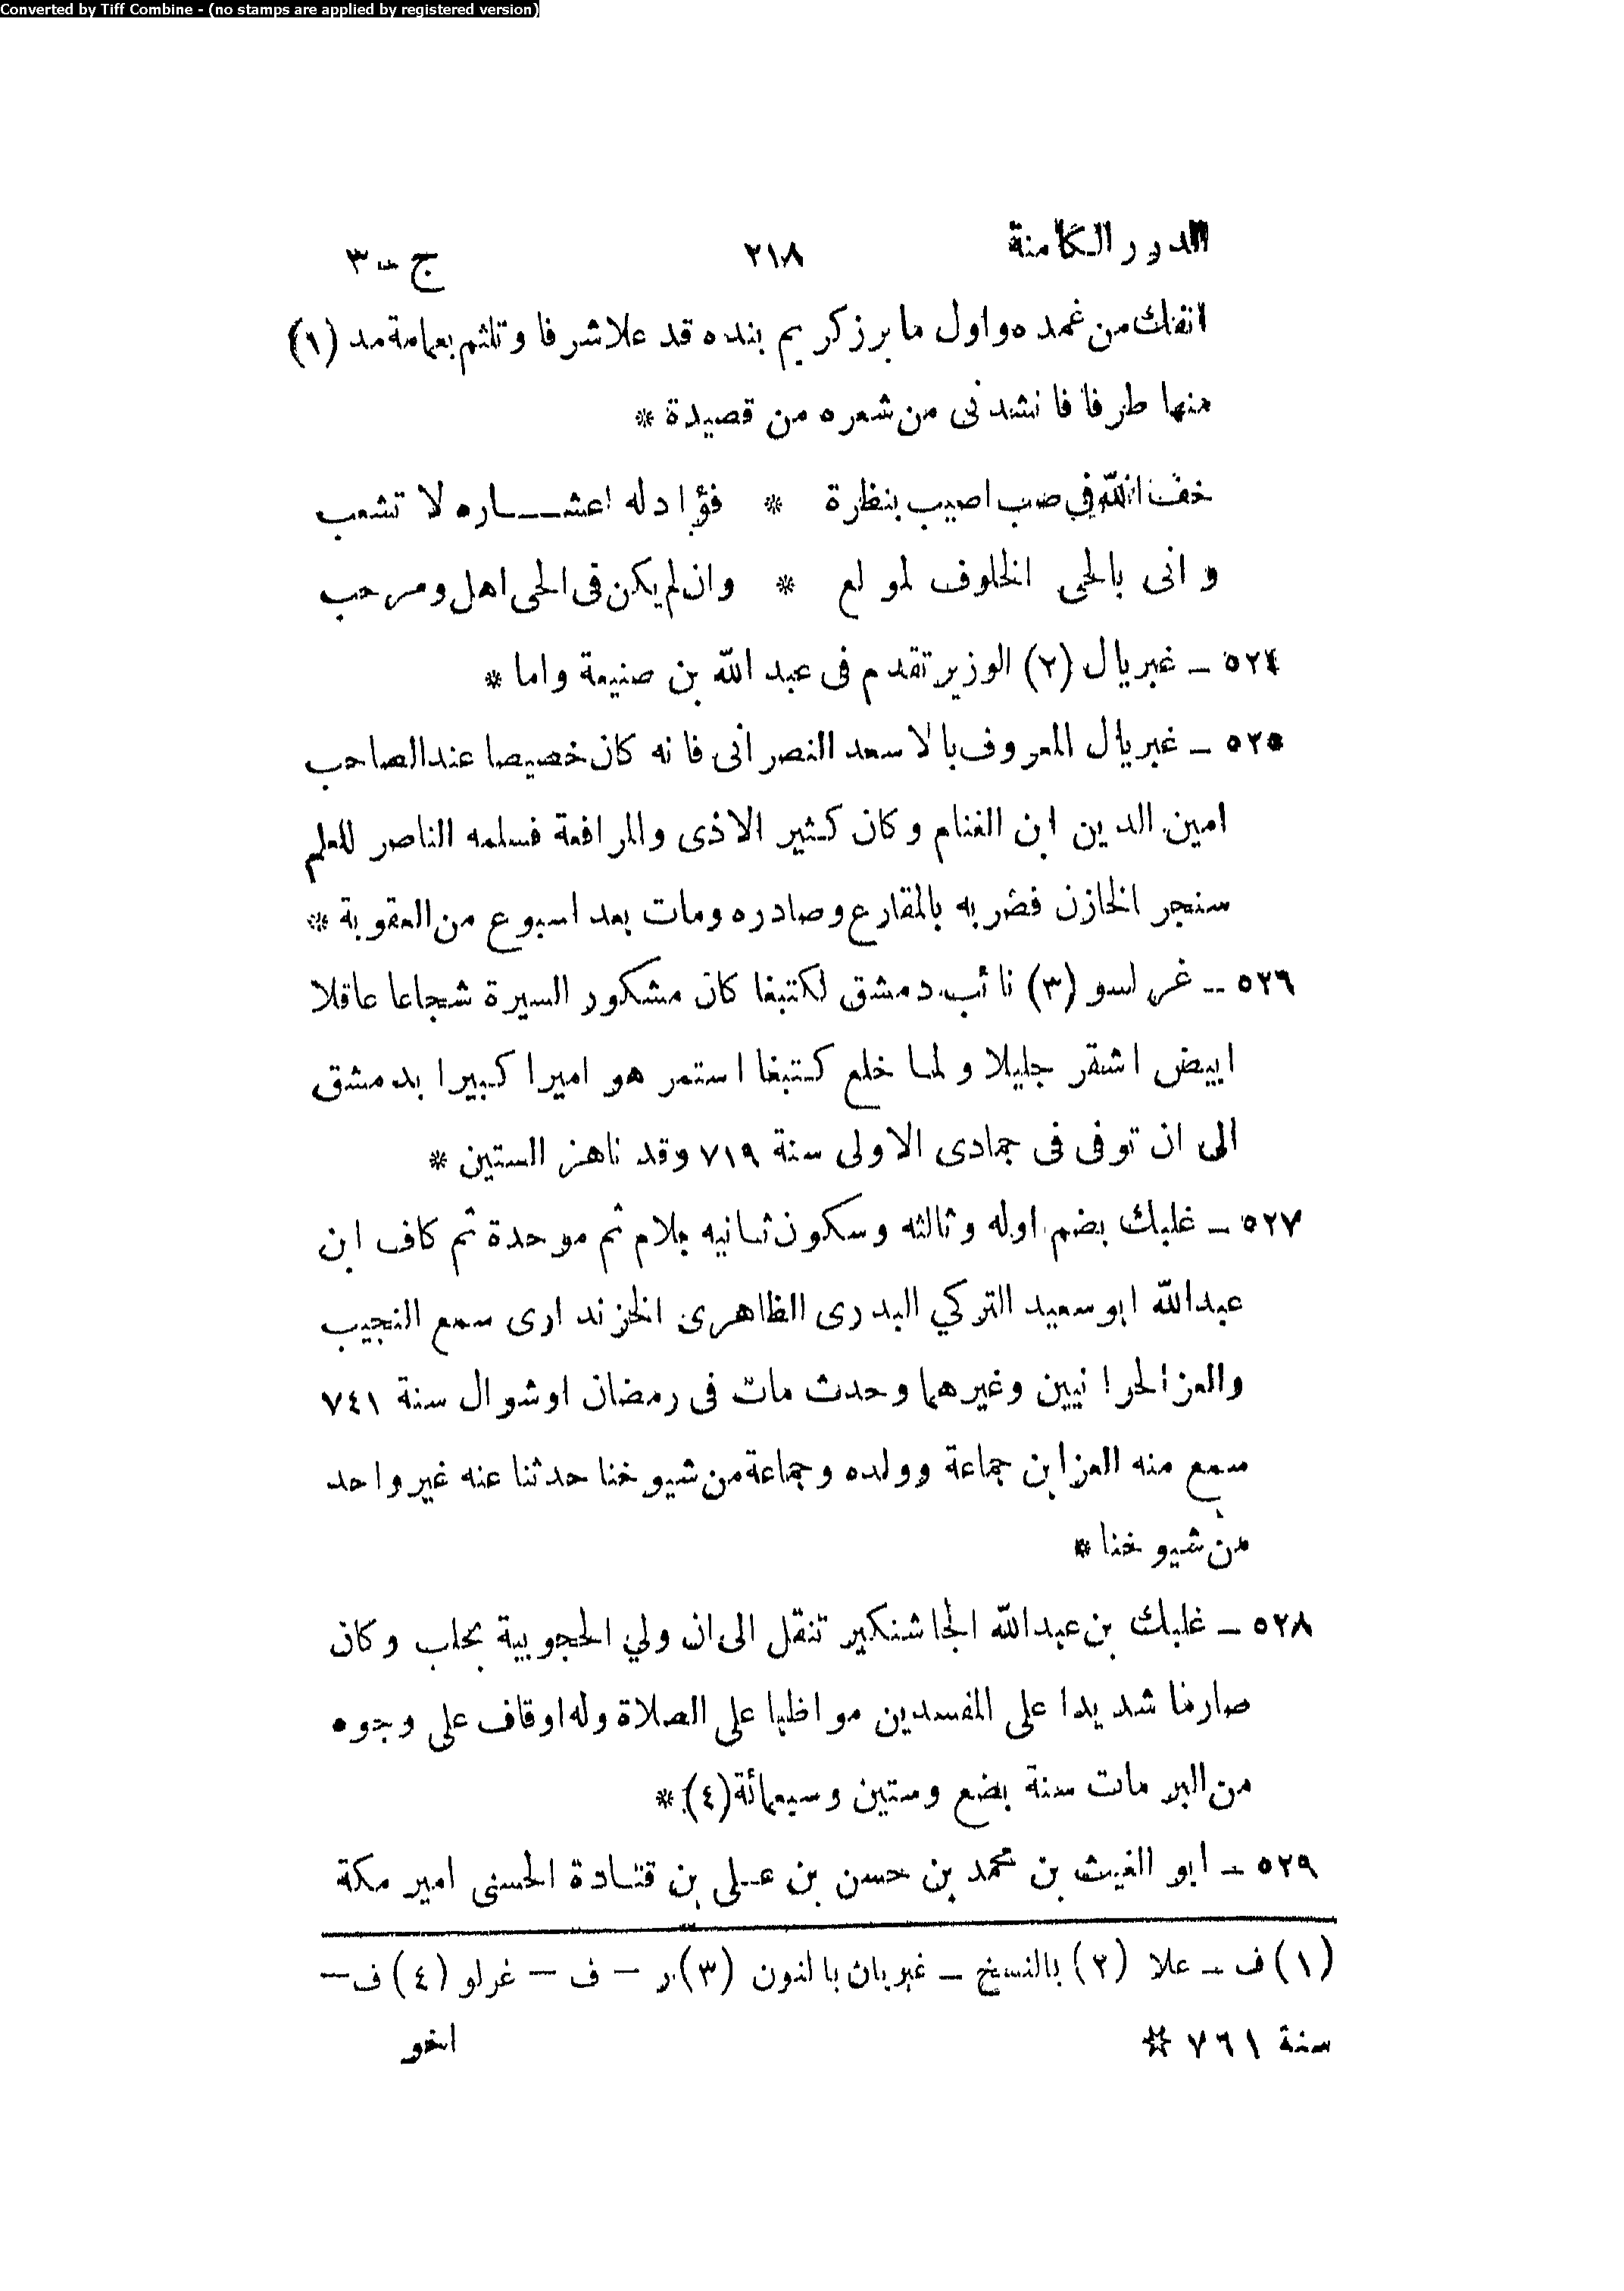 Converted by Tiff Combine - (no stamps are applied by registered version)
الدرر الكامنة ٢١٨ ج - ٣
انفك من غمده واول ما برز كريم بنده قد علا شرفا وتلثم بعمامة مد (١)
منها طرفا فانشدنى من شعره من قصيدة *
خف الله في صب اصيب بنظرة * فؤاد له اعشاره لا تشعب
وانى بالحى الخلوف لمولع * وان لم يكن فى الحى اهل ومرحب
٥٢٤ – غبريال (٢) الوزير تقدم فى عبد الله بن صنيعة واما *
٥٢٥ – غبريال المعروف بالاسعد النصرانى فانه كان خصيصا عند الصاحب
امين الدين ابن الغنام وكان كثير الاذى والمرافعة فسلمه الناصر للعلم
سنجر الخازن فضربه بالمقارع وصادره ومات بعد اسبوع من العقوبة *
٥٢٦ – غرلسو (٣) نائب دمشق لكتبغا كان مشكور السيرة شجاعا عاقلا
ابيض اشقر جليلا ولما خلع كتبغا استمر هو اميرا كبيرا بدمشق
الى ان توفى فى جمادى الاولى سنة ٧١٩ وقد ناهز الستين *
٥٢٧ – غلبك بضم اوله وثالثه وسكون ثانيه بلام ثم موحدة ثم كاف ابن
عبدالله ابو سعيد التركي البدرى الظاهرى الخزندارى سمع النجيب
والعز الحرانيين وغيرهما وحدث مات فى رمضان اوشوال سنة ٧٤١
سمع منه العز ابن جماعة وولده وجماعة من شيوخنا حدثنا عنه غير واحد
من شيوخنا *
٥٢٨ – غلبك بن عبدالله الجاشنكير تنقل الى ان ولي الحجوبية بحلب وكان
صارما شديدا على المفسدين مواظبا على الصلاة وله اوقاف على وجوه
من البر مات سنة بضع وستين وسبعمائة (٤) *
٥٢٩ – ابو الغيث بن محمد بن حسن بن عــلى بن قتــادة الحسنى امير مكة
(١) ف – علا (٢) بالنسخ – غبريان بالنون (٣) ر – ف – غرلو (٤) ف –
سنة ٧٦١ * اخو